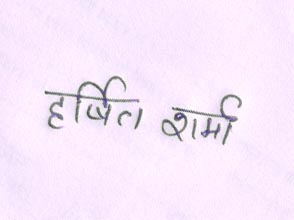 हर्षित शर्मा